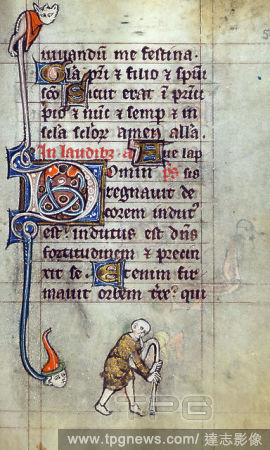 iuuandum me festina.
Gła pri ⁊ filio ⁊ spui
sco Sicut erat i prin
pio ⁊ nūc ⁊ semp ⁊ in
scła scłoꝝ amen ałła.
In laudibꝫ a Aue
Domin ps
regnauit de
corem indut'
est indutus est dns
fortitudinem ⁊ precin
xit se. Etenim fir
mauit orbem tre: qui
TPG
www.tpgnews.com/達志影像